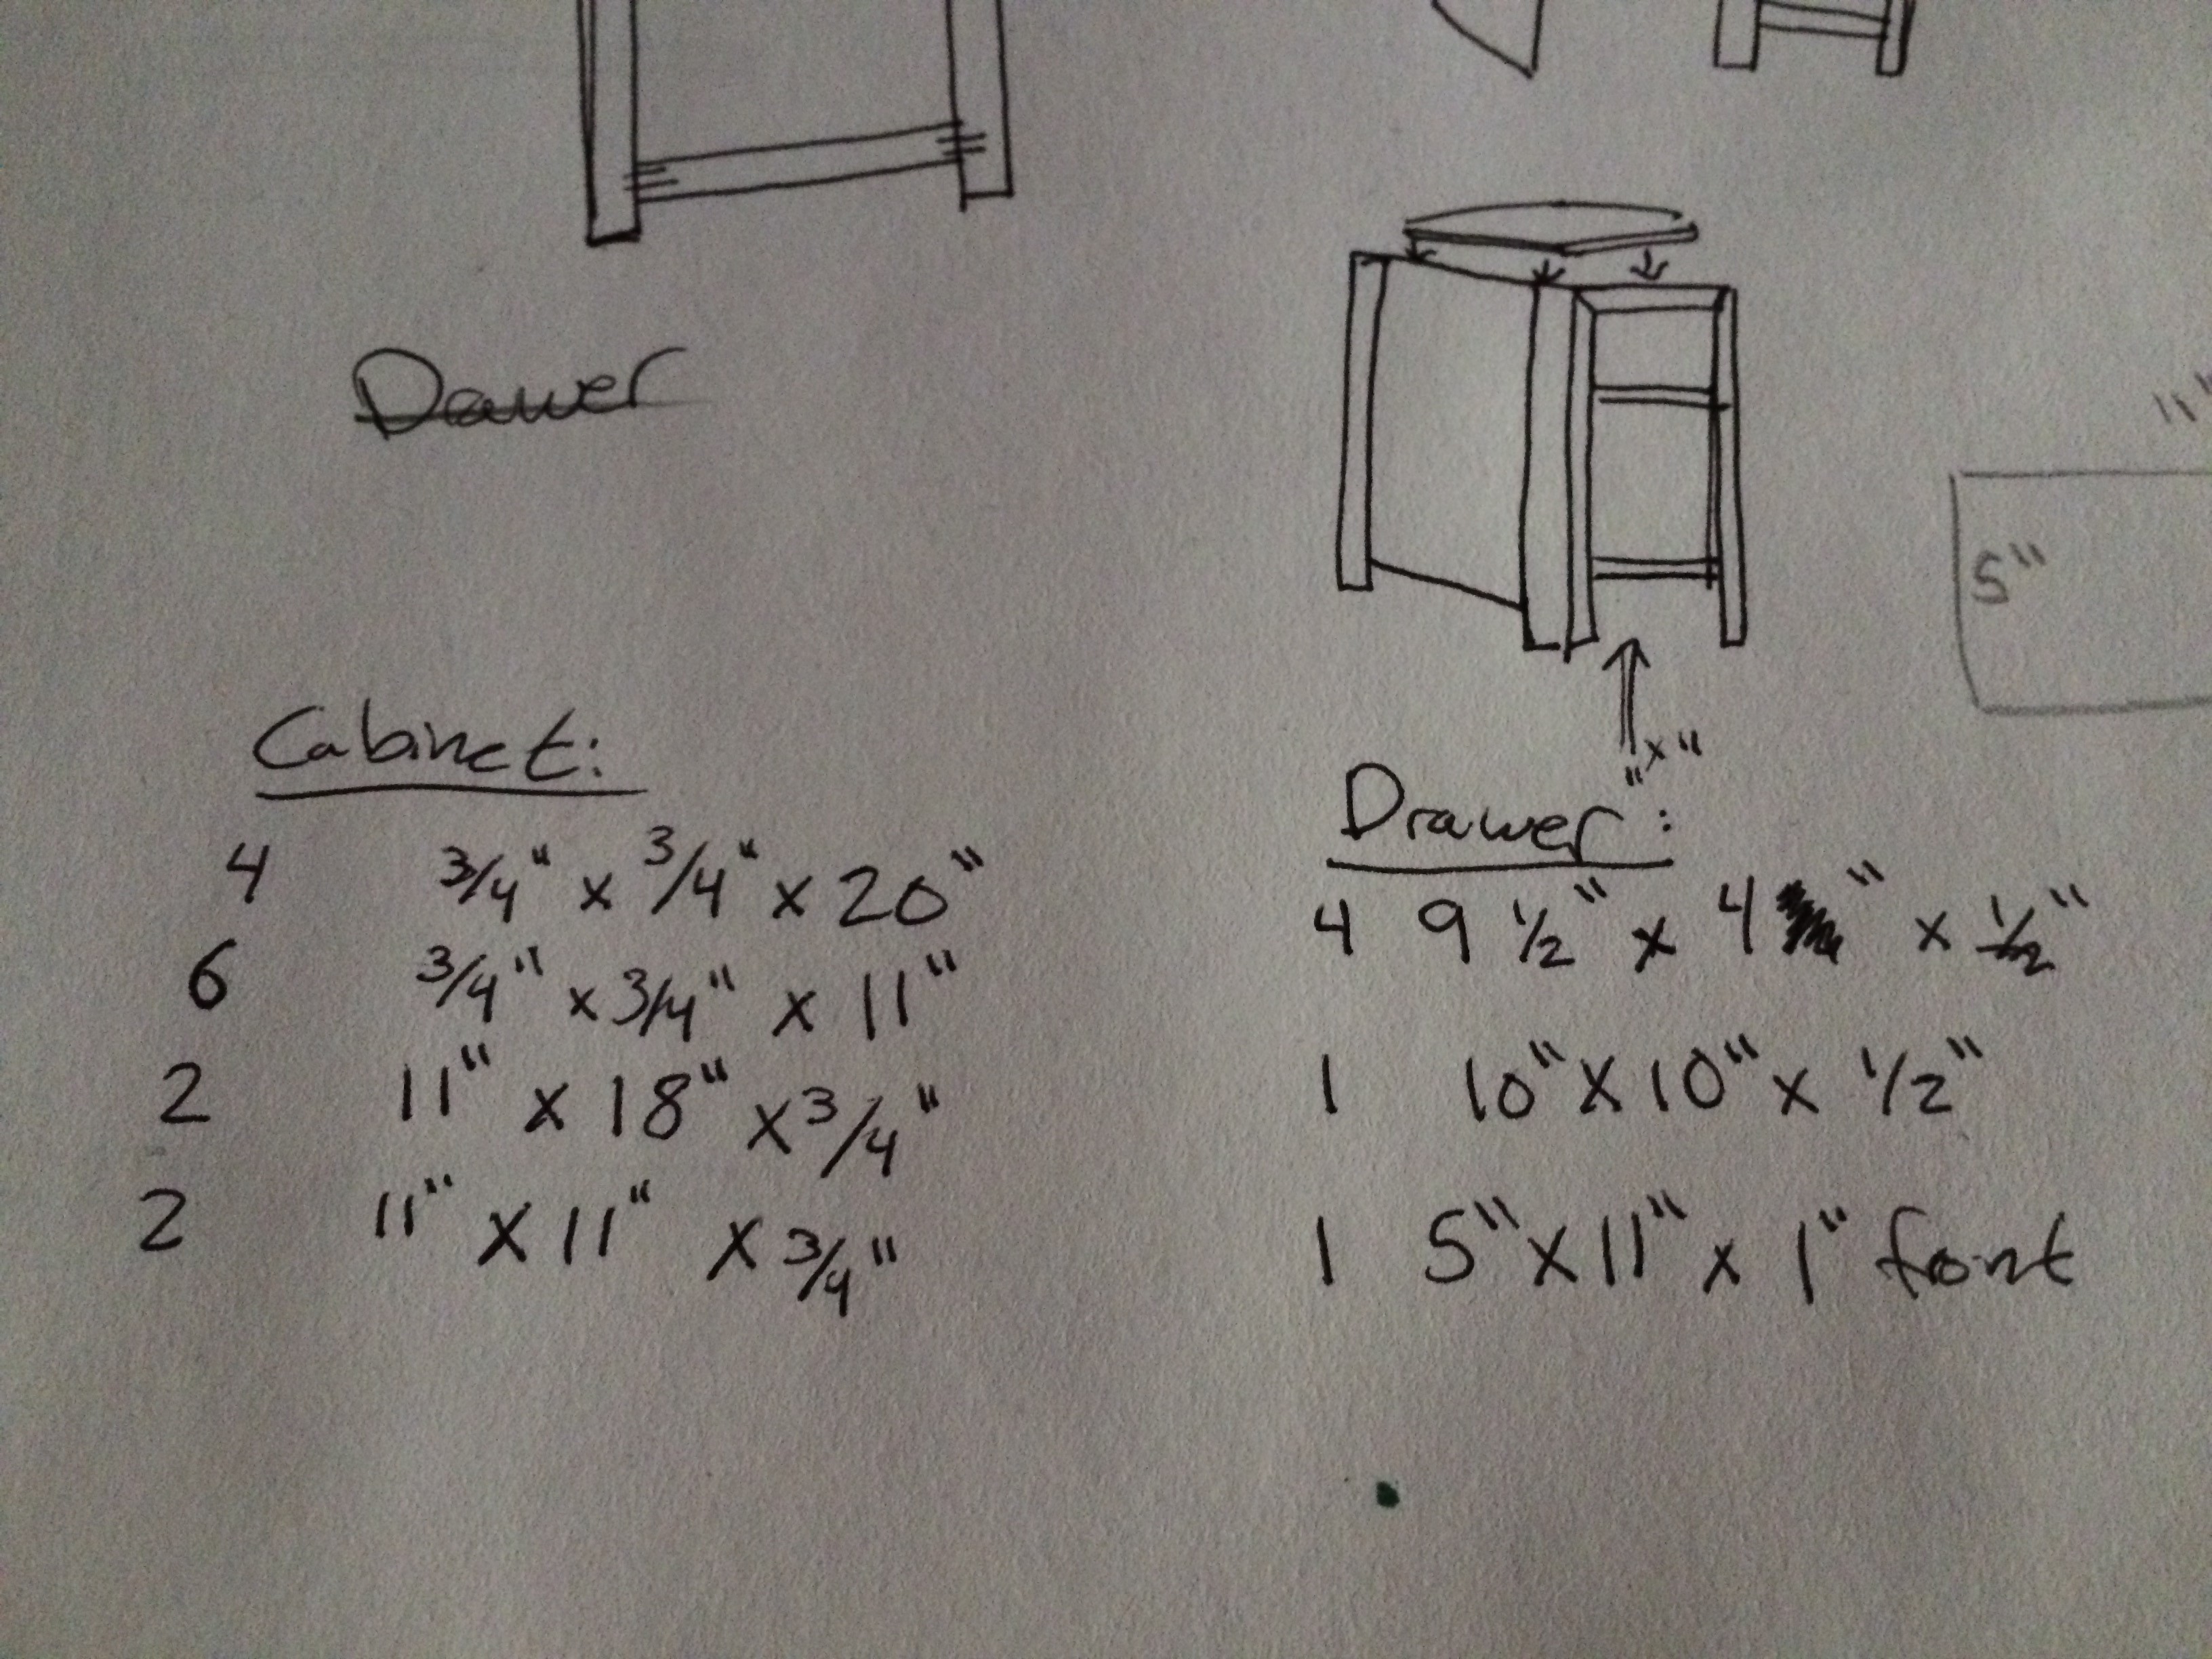 Drawer
"
5"
" x "
Cabinet:
4 3/4" x 3/4" x 20"
6 3/4" x 3/4" x 11"
2 11" x 18" x 3/4"
2 11" x 11" x 3/4"
Drawer:
4 9 1/2" x 4 " x 1/2"
1 10" x 10" x 1/2"
1 5" x 11" x 1" front